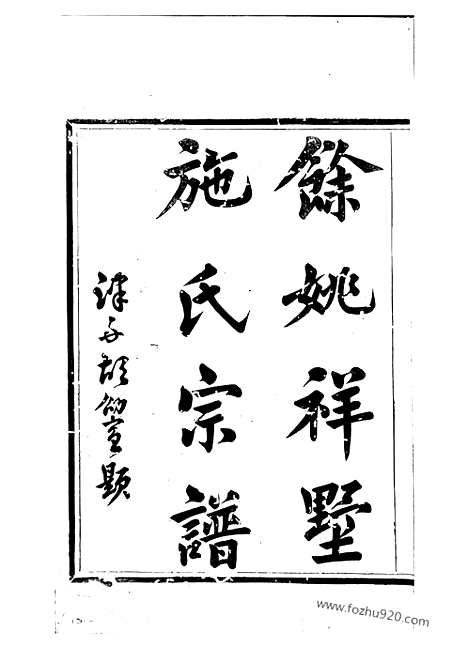 餘姚祥墅
施氏宗譜
胡幼宣題
www.fozhu920.com